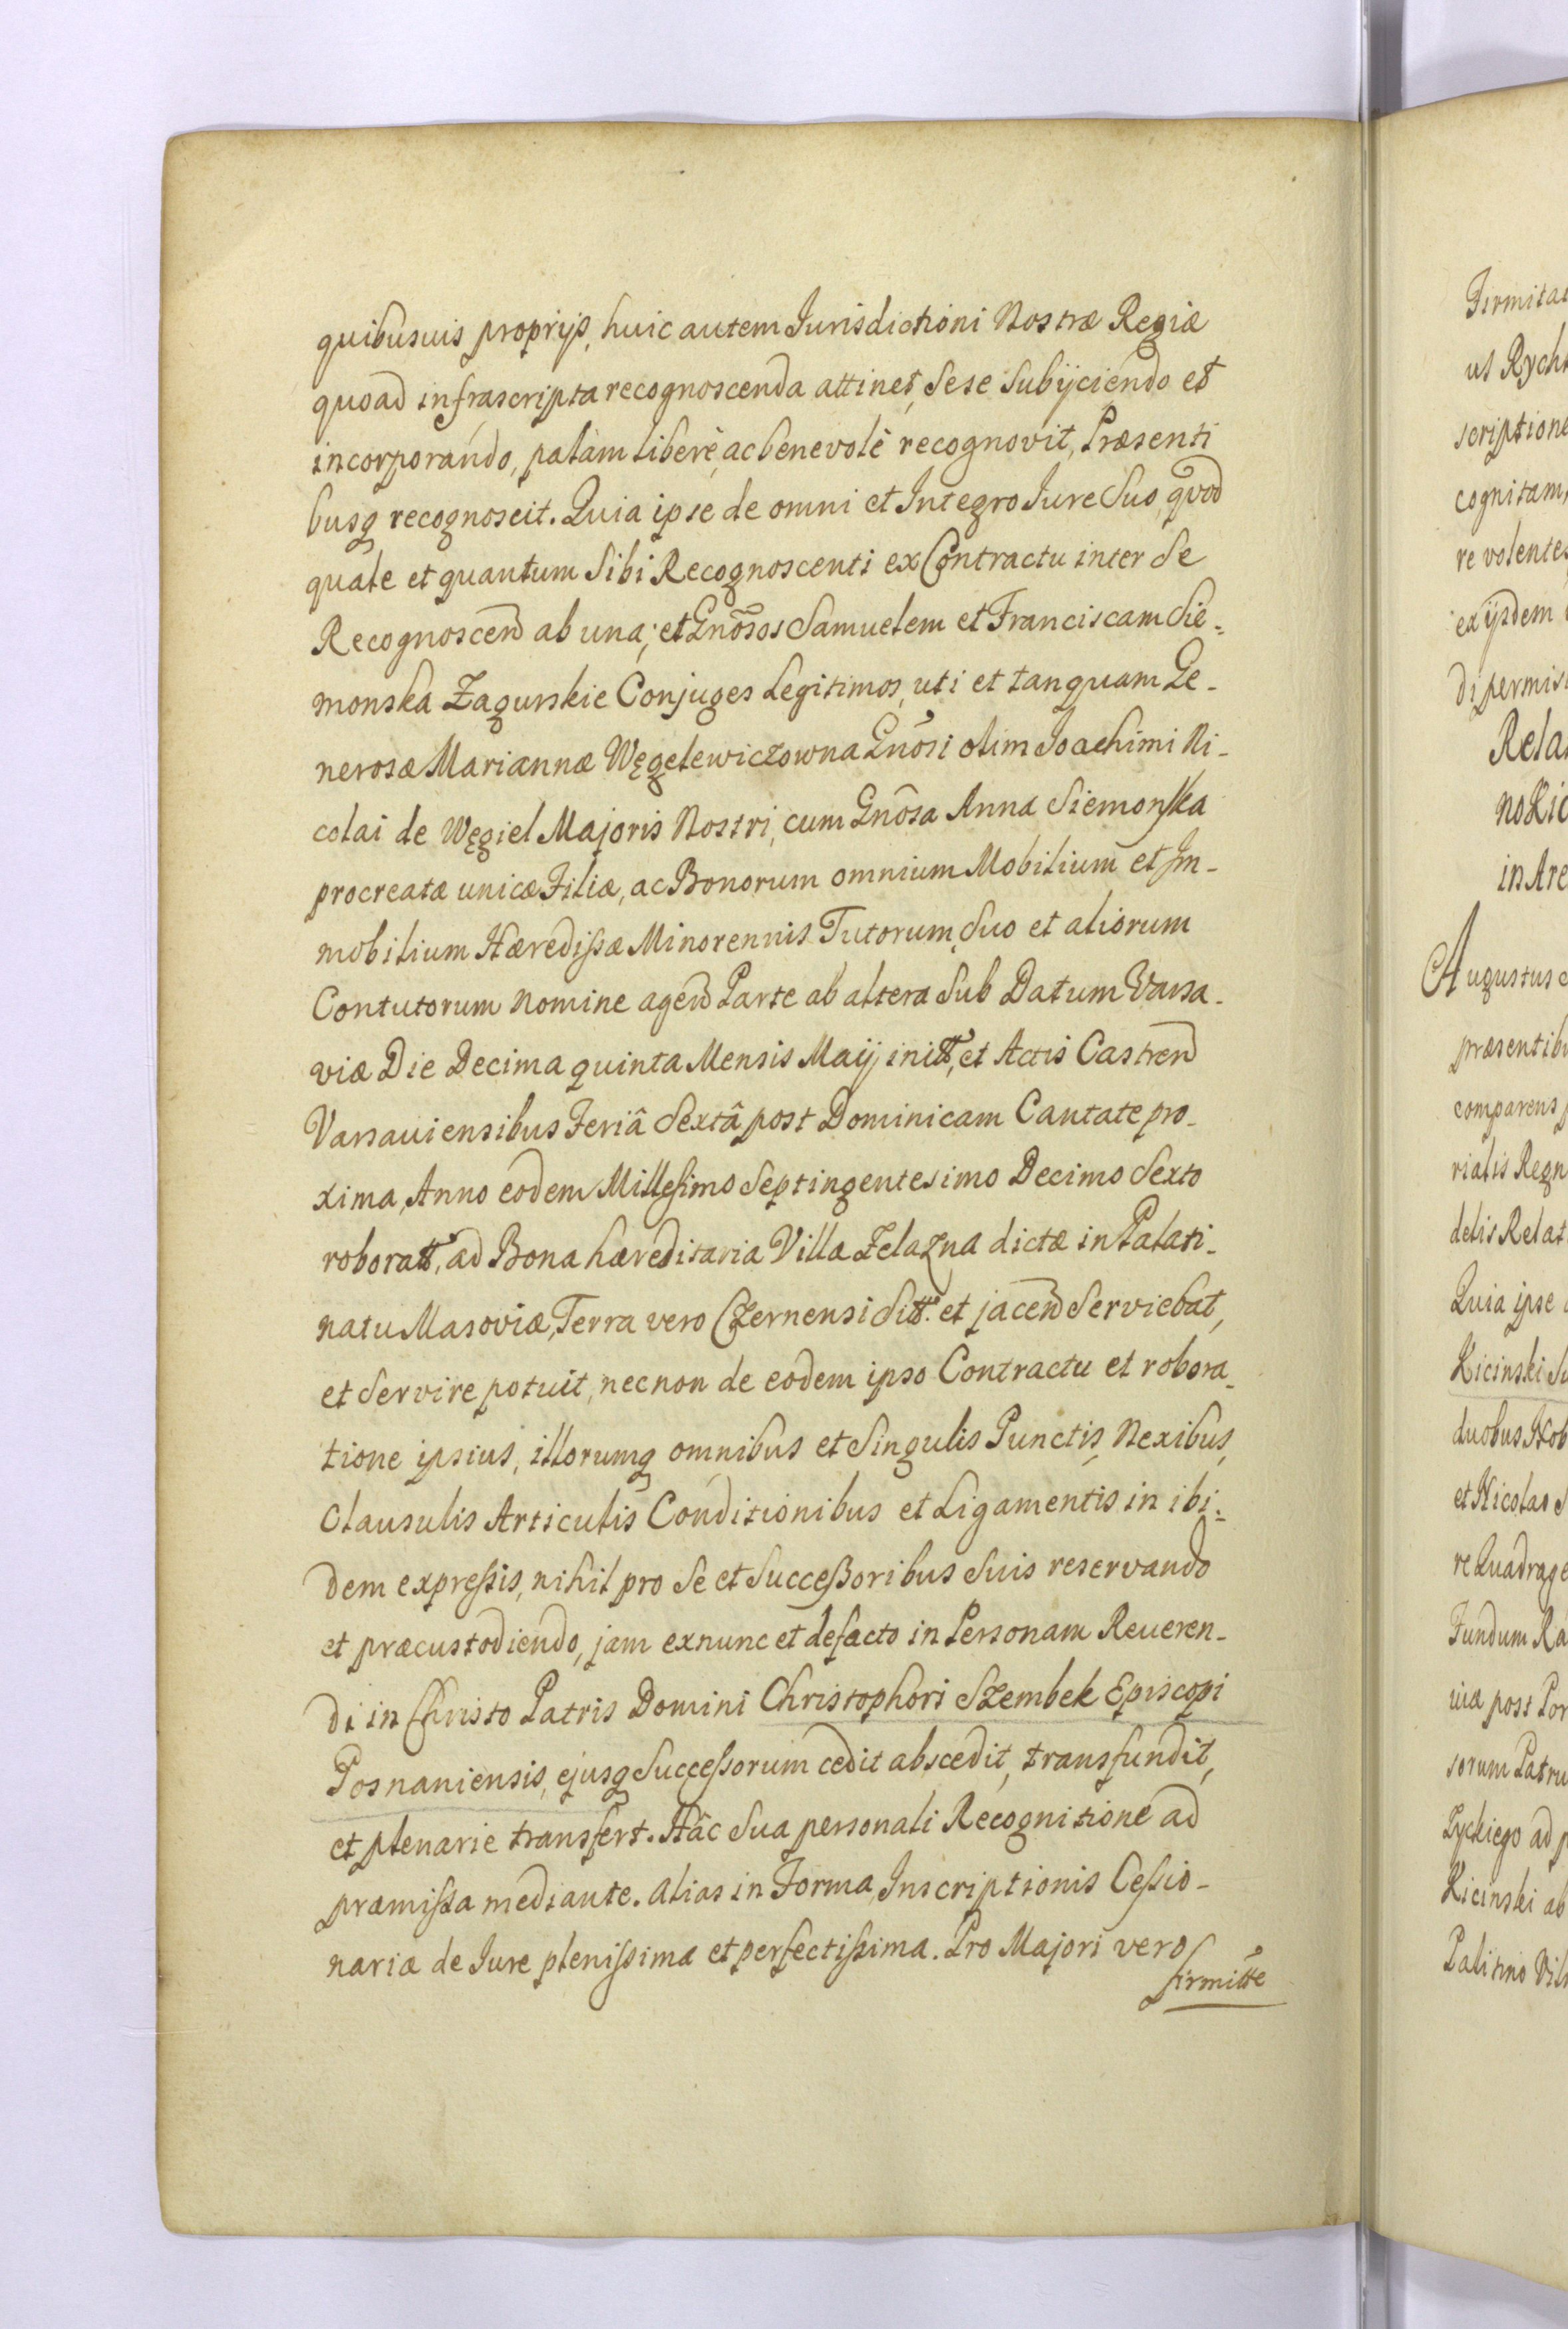 quibusuis proprijs, huic autem Jurisdictioni Nostræ Regiæ
quoad infrascripta recognoscenda attinet, Sese Subijciendo et
incorporando, palàm liberè, ac benevolè recognovit, Præsenti
busq recognoscit. Quia ipse de omni et Integro Jure Suo, quod
quale et quantum Sibi Recognoscenti ex Contractu inter Se
Recognoscen̄ ab una; et Gnōsos Samuelem et Franciscam Sie-
monska Zagurskie Conjuges Legitimos, uti et tanquam Ge-
nerosæ Mariannæ Węgelewiczowna Gnōsi olim Joachimi Ni-
colai de Węgiel Majoris Nostri, cum Gnōsa Anna Siemonska
procreatæ unicæ Filiæ, ac Bonorum omnium Mobilium et Im-
mobilium Hæredißæ Minorennis Tutorum, Suo et aliorum
Contutorum nomine agen̄ Parte ab altera Sub Datum Varsa-
viæ Die Decima quinta Mensis Maij initt, et Actis Castren̄
Varsauiensibus Feriâ Sextâ post Dominicam Cantate pro-
xima, Anno eodem Millesimo Septingentesimo Decimo Sexto
roboratt, ad Bona hæreditaria Villa Zelazna dictæ in Palati-
natu Masoviæ, Terra vero Czernensi Sitt. et jacen̄ Serviebat,
et Servire potuit, necnon de eodem ipso Contractu et robora-
tione ipsius, illorumq omnibus et Singulis Punctis, Nexibus,
Clausulis Articulis Conditionibus et Ligamentis in ibi-
dem expreßis, nihil pro Se et Succeßoribus Suis reservando
et præcustodiendo, jam exnunc et defacto in Personam Reueren-
di in Christo Patris Domini Christophori Szembek Episcopi
Posnaniensis, ejusq Successorum cedit abscedit, transfundit,
et plenarie transfert. Hâc Sua personali Recognitione ad
præmißa mediante. Alias in Forma Inscriptionis Ceßio-
nariæ de Jure plenißima et perfectißima. Pro Majori vero
firmitte
Firmitat
ut Rych
scriptione
cognitam,
re volentes
exijsdem
di permis
Rela
no Kic
in Are
Augustus
præsentib
comparens
rialis Regn
delis Relat
Quia ipse
Kicinski Su
duobus Nob
et Nicolao
re Quadrage
Fundum Ra
uia post Por
sorum Patru
Zyckiego ad
Kicinski ab
Palitino Vil